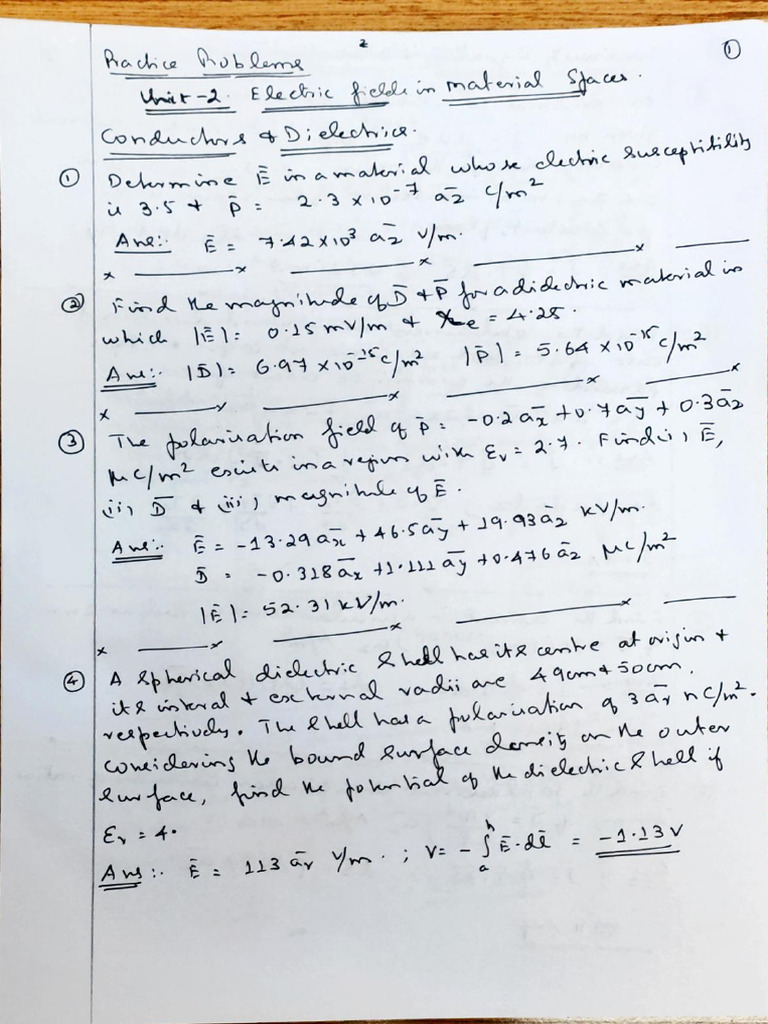 2
①
Practice Problems
Unit-2. Electric fields in Material Spaces.
Conductors & Dielectrics.
① Determine E̅ in a material whose electric susceptibility
is 3.5 & P̅ = 2.3 × 10⁻⁷ a̅z C/m²
Ans:. E̅ = 7.42×10³ a̅z V/m.
x ——— x ——— x ——— x ———
② Find the magnitude of D̅ & P̅ for a dielectric material in
which |E̅| = 0.15 mV/m & χe = 4.28.
Ans:. |D̅| = 6.97 × 10⁻¹⁵ C/m² |P̅| = 5.64 × 10⁻¹⁵ C/m²
x ——— x ——— x ——— x
③ The polarisation field of P = -0.2 a̅x + 0.7 a̅y + 0.3 a̅z
μC/m² exists in a region with εr = 2.7. Find i) E̅,
(ii) D̅ & (iii) magnitude of E̅.
Ans:. E̅ = -13.29 a̅x + 46.5 a̅y + 19.93 a̅z KV/m.
D̅ = -0.318 a̅x + 1.111 a̅y + 0.476 a̅z μC/m²
|E̅| = 52.31 kV/m.
x ——— x ——— x ——— x ———
④ A spherical dielectric shell has its centre at origin &
its internal & external radii are 49cm & 50cm.
respectively. The shell has a polarisation of 3 a̅r nC/m².
Considering the bound surface density on the outer
surface, find the potential of the dielectric shell if
εr = 4.
Ans:. E̅ = 113 a̅r V/m. ; V = - ∫ₐᵇ E̅·dl̅ = -1.13 V